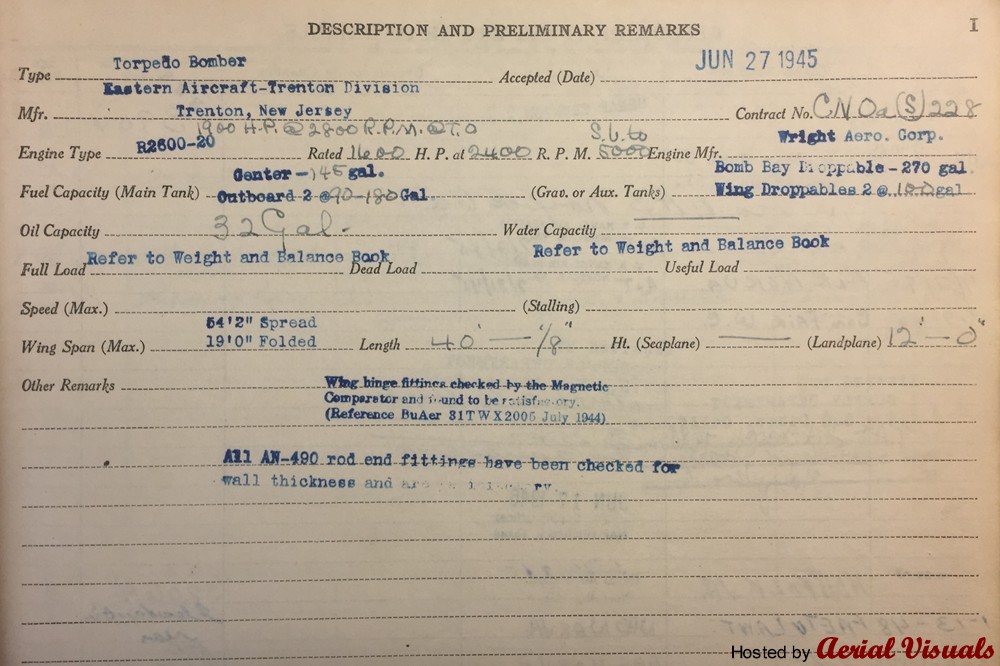 DESCRIPTION AND PRELIMINARY REMARKS I
Type Torpedo Bomber Accepted (Date) JUN 27 1945
Eastern Aircraft-Trenton Division
Mfr. Trenton, New Jersey Contract No. CNOa(S)228
1900 H.P. @ 2800 R.P.M. @ T.O S.L. to Wright Aero. Corp.
Engine Type R2600-20 Rated 1600 H. P. at 2400 R. P. M. 5000 Engine Mfr.
Center - 145 gal. Bomb Bay Droppable - 270 gal.
Fuel Capacity (Main Tank) Outboard 2 @ 90-180 Gal (Grav. or Aux. Tanks) Wing Droppables 2 @ gal
Oil Capacity 32 Gal. Water Capacity
Refer to Weight and Balance Book Refer to Weight and Balance Book
Full Load Dead Load Useful Load
Speed (Max.) (Stalling)
54'2" Spread
Wing Span (Max.) 19'0" Folded Length 40' — 1/8" Ht. (Seaplane) — (Landplane) 12' — 0"
Other Remarks Wing hinge fittings checked by the Magnetic
Comparator and found to be satisfactory.
(Reference BuAer 31TWX2005 July 1944)
All AN-490 rod end fittings have been checked for
wall thickness and are
JUN 17
Hosted by Aerial Visuals